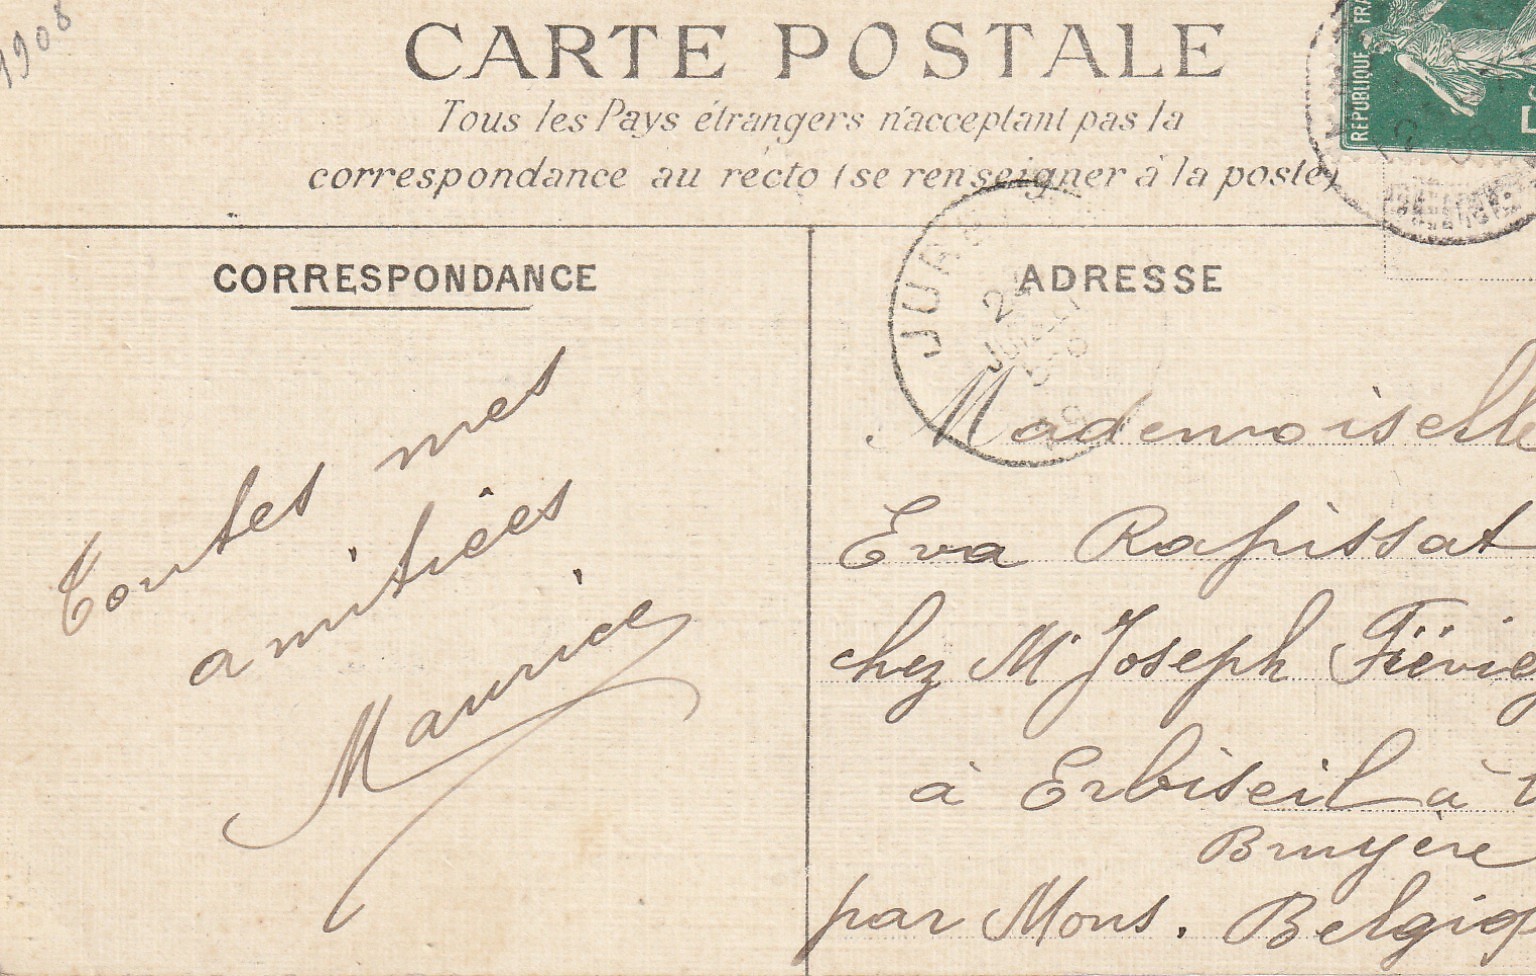 1908
CARTE POSTALE
Tous les Pays étrangers n'acceptant pas la
correspondance au recto (se renseigner à la poste)
REPUBLIQUE FRA
CORRESPONDANCE
ADRESSE
JUR
JUILLET
Toutes mes
amitiées
Maurice
Mademoiselle
Eva Rapissat
chez Mr Joseph
à Erbiseil à
Bruyère
par Mons. Belgiq